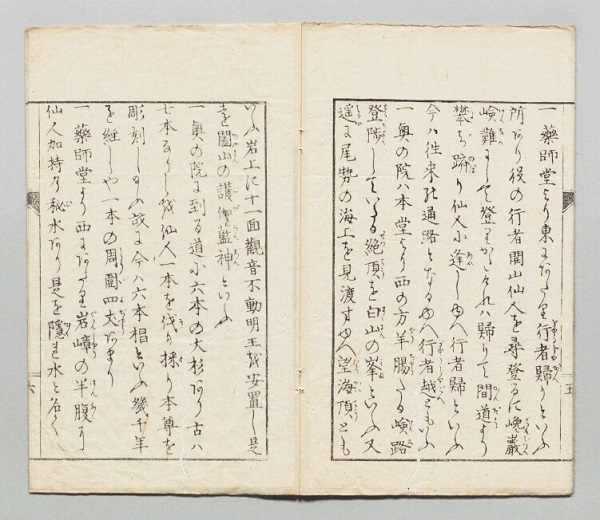 一 藥師堂より東にあたり行者歸りといふ
所あり役の行者開山仙人を尋登るに巉巖
嶮難にして登りかたけれハ歸りて間道より
攀ぢ躋り仙人に逢しゆへ行者歸といふ
今ハ往来の通路となるゆへ行者越ともいふ
一 奥の院ハ本堂より西の方羊腸たる嶮路
登陟していたる絶頂を白山の峯といふ又
遥に尾勢の海上を見渡すゆへ望海頂とも
いふ岩上に十一面觀音不動明王を安置し是
を圖山の護伽藍神といふ
一 奥の院に到る道に六本の大杉あり古ハ
七本なり 仙人一本を伐り採り本尊を
彫刻しるふ故に今ハ六本椙といふ幾千年
を經しや一本の周圍四丈あまり
一 藥師堂より西にあたり岩嶂の半腹に
仙人加持の秘水あり是を隱れ水と名く
五
六